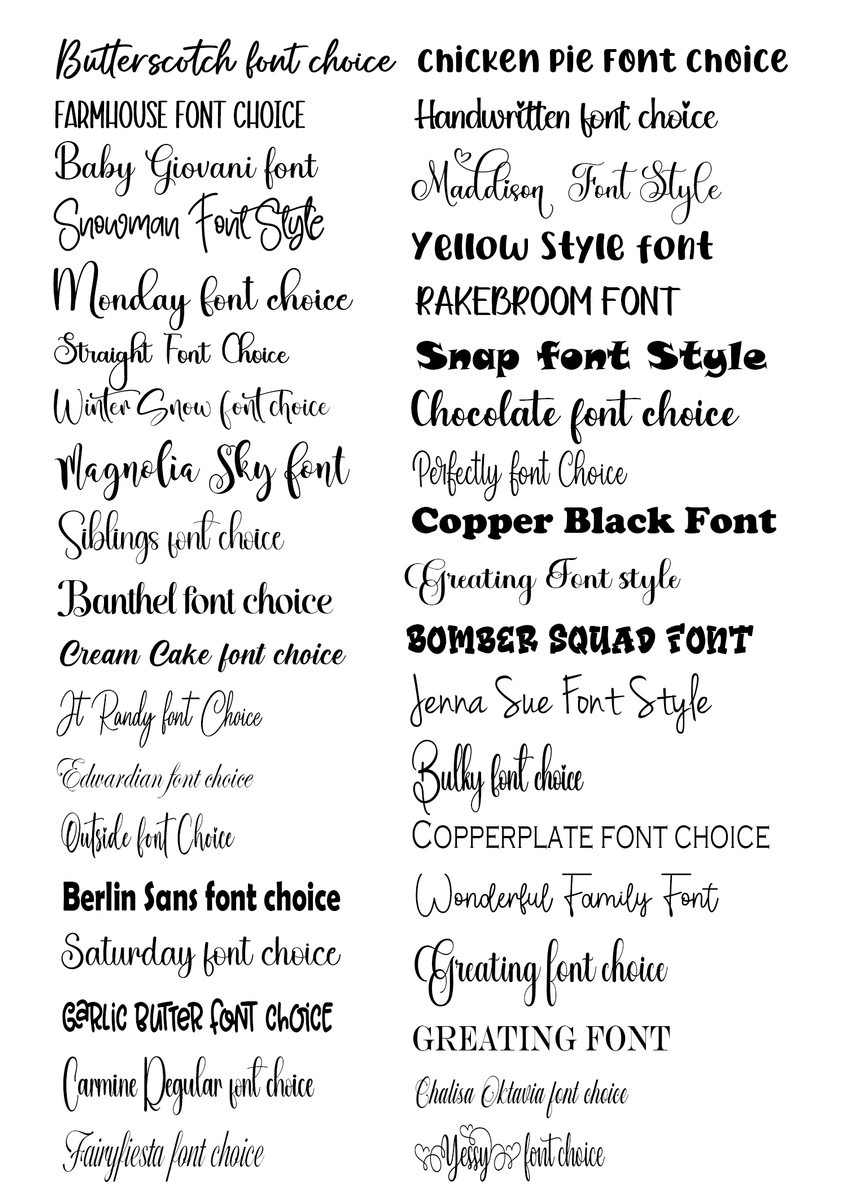 Butterscotch font choice
FARMHOUSE FONT CHOICE
Baby Giovani font
Snowman Font Style
Monday font choice
Straight Font Choice
Winter Snow font choice
Magnolia Sky font
Siblings font choice
Banthel font choice
Cream Cake font choice
Jt Randy font Choice
Edwardian font choice
Outside font Choice
Berlin Sans font choice
Saturday font choice
GaRLIC BUTTeR FONT CHOICE
Carmine Regular font choice
Fairyfiesta font choice
Chicken Pie Font Choice
Handwritten font choice
Maddison Font Style
Yellow Style font
RAKEBROOM FONT
Snap font Style
Chocolate font choice
Perfectly font Choice
Copper Black Font
Greating Font style
BOMBER SQUAD FONT
Jenna Sue Font Style
Bulky font choice
COPPERPLATE FONT CHOICE
Wonderful Family Font
Greating font choice
GREATING FONT
Chalisa Oktavia font choice
Yessy font choice